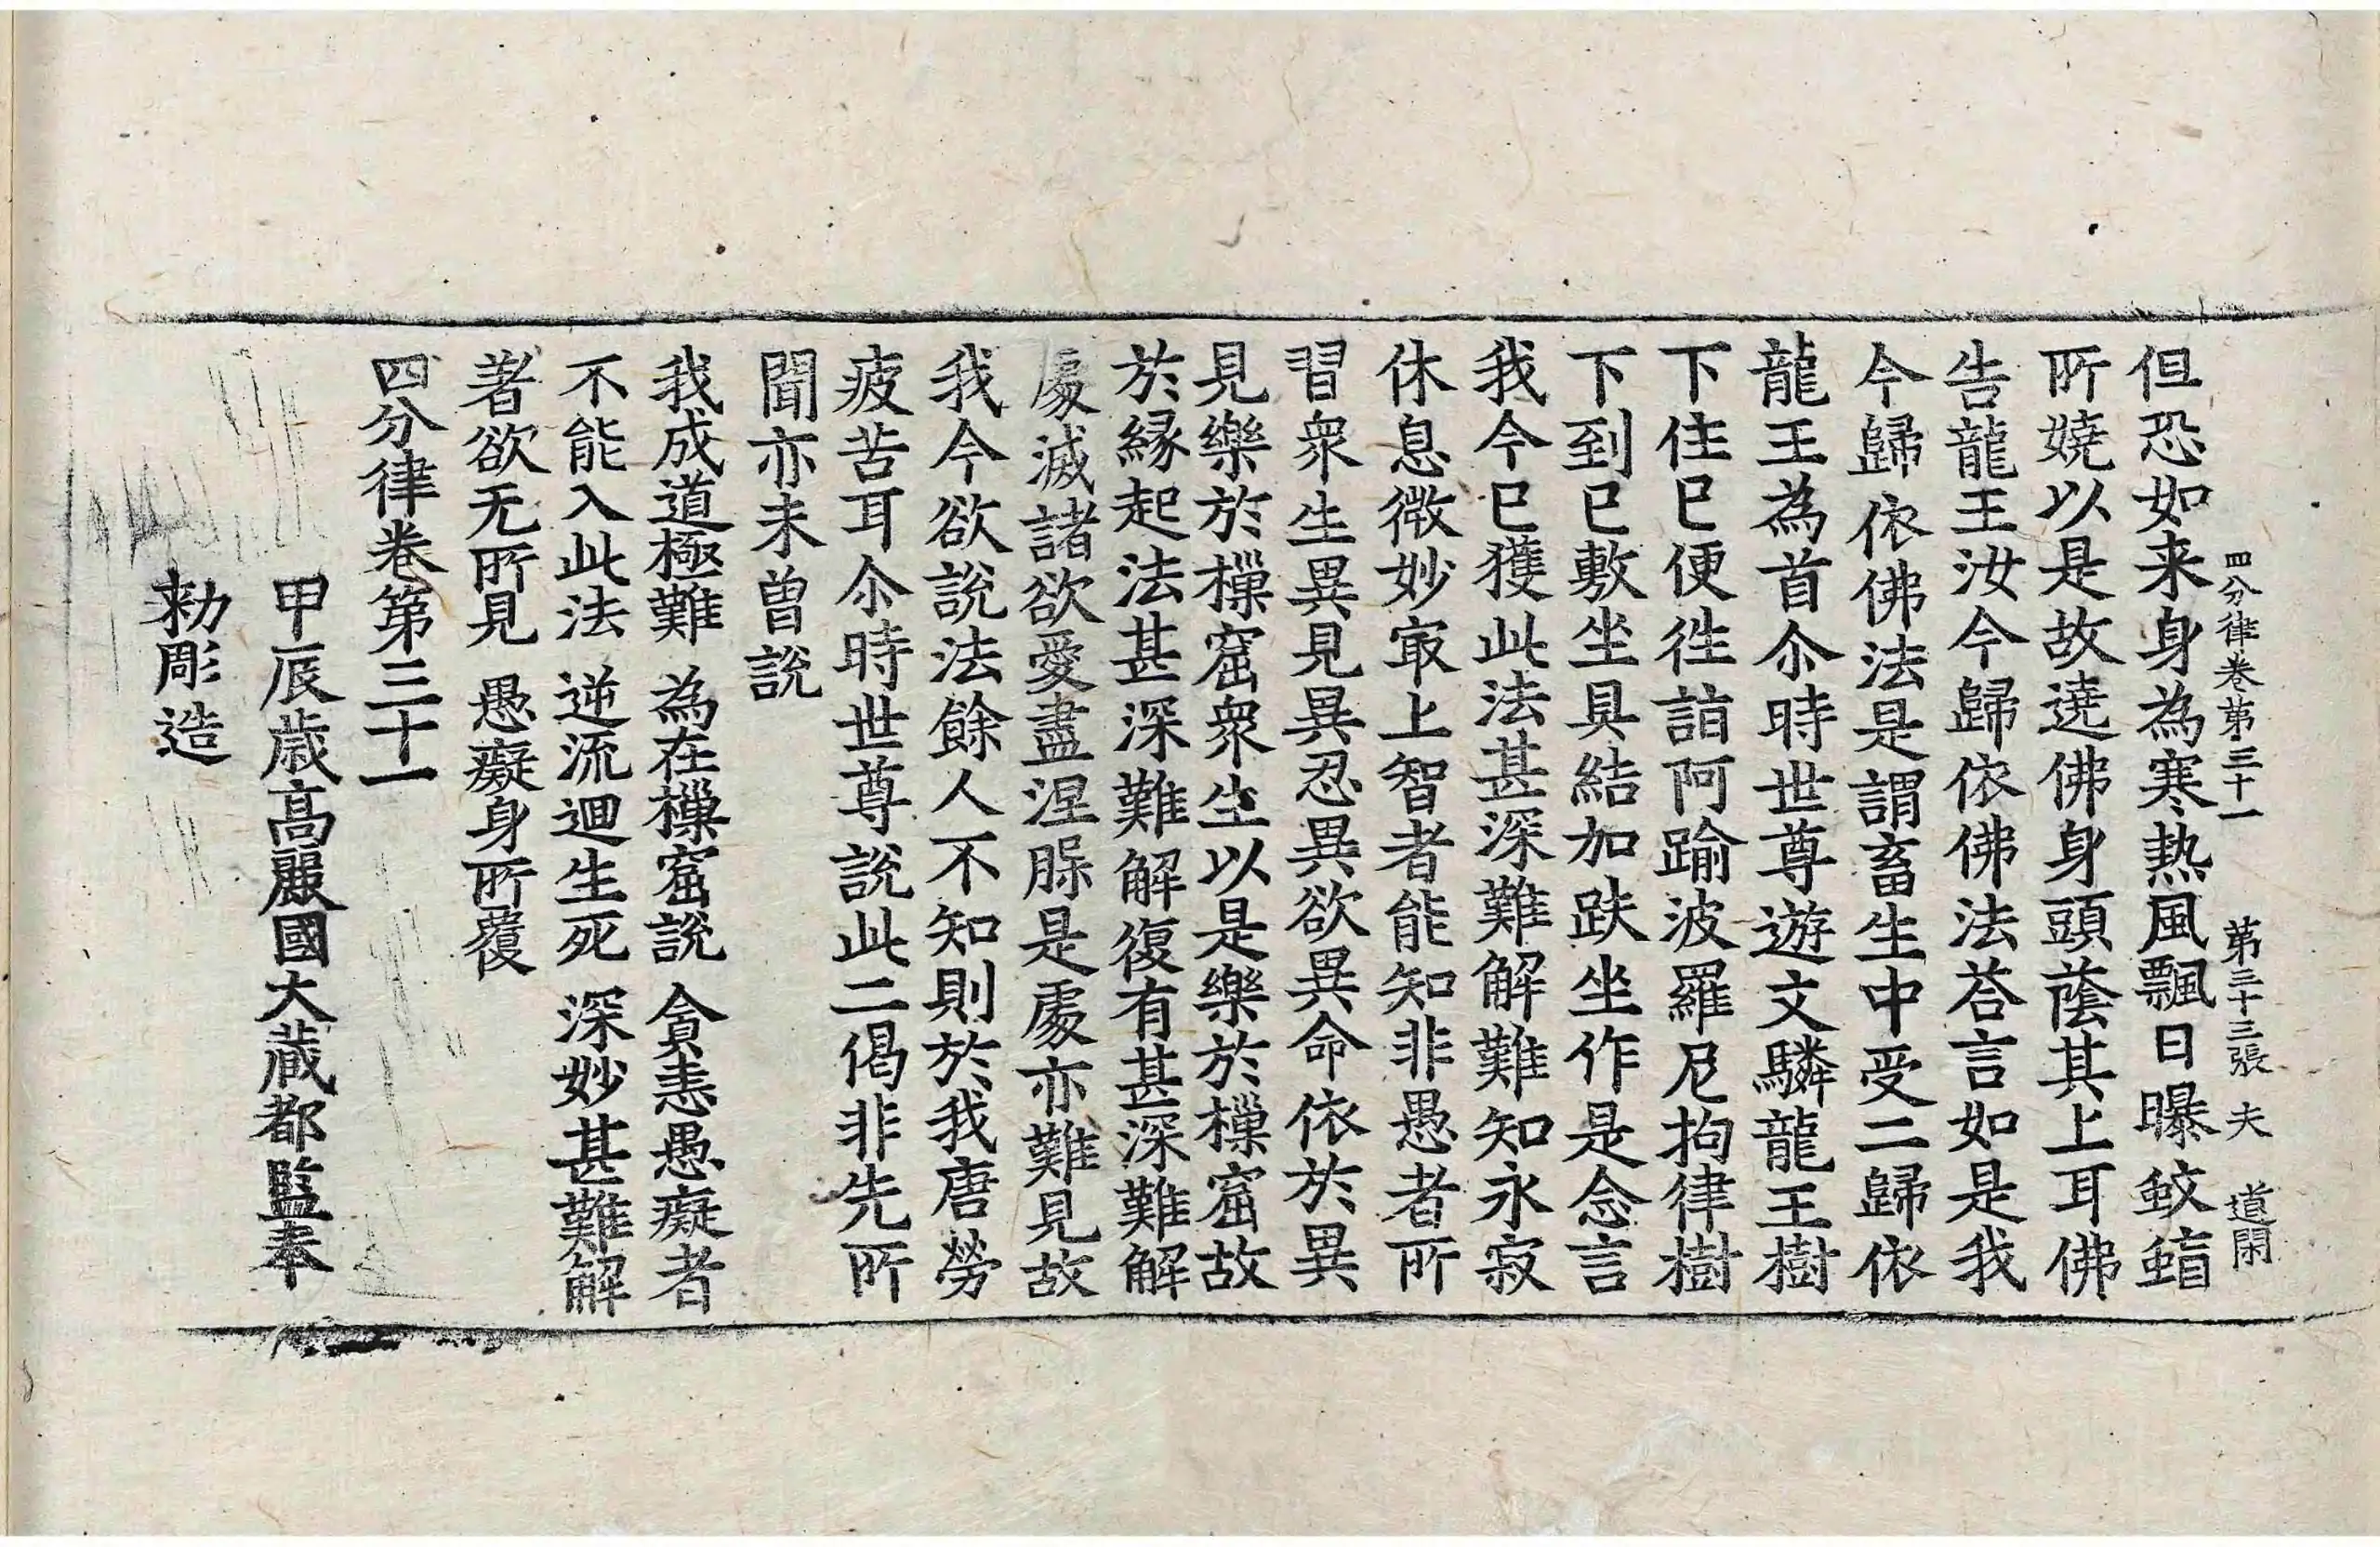 四分律卷第三十一 第三十三張 夫 道閑
但恐如来身為寒熱風飄日曝蚊䖟
所嬈以是故遶佛身頭蔭其上耳佛
告龍王汝今歸依佛法荅言如是我
今歸依佛法是謂畜生中受二歸依
龍王為首尒時世尊遊文驎龍王樹
下住已便往詣阿踰波羅尼拘律樹
下到已敷坐具結加趺坐作是念言
我今已獲此法甚深難解難知永寂
休息微妙㝡上智者能知非愚者所
習衆生異見異忍異欲異命依於異
見樂於樔窟衆生以是樂於樔窟故
於緣起法甚深難解復有甚深難解
處滅諸欲愛盡涅槃是處亦難見故
我今欲說法餘人不知則於我唐勞
疲苦耳尒時世尊說此二偈非先所
聞亦未曾說
我成道極難 為在樔窟說 貪恚愚癡者
不能入此法 逆流迴生死 深妙甚難解
著欲无所見 愚癡身所覆
四分律卷第三十一
甲辰歳高麗國大藏都監奉
勑彫造